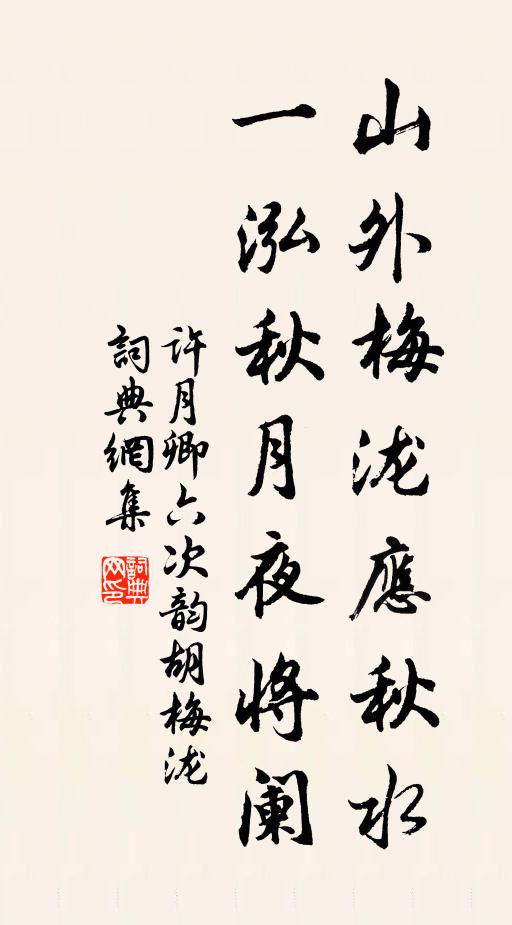 山外梅泷應秋水
一泓秋月夜将阑
许月卿六次韵胡梅泷
詞典網集
詞典网印